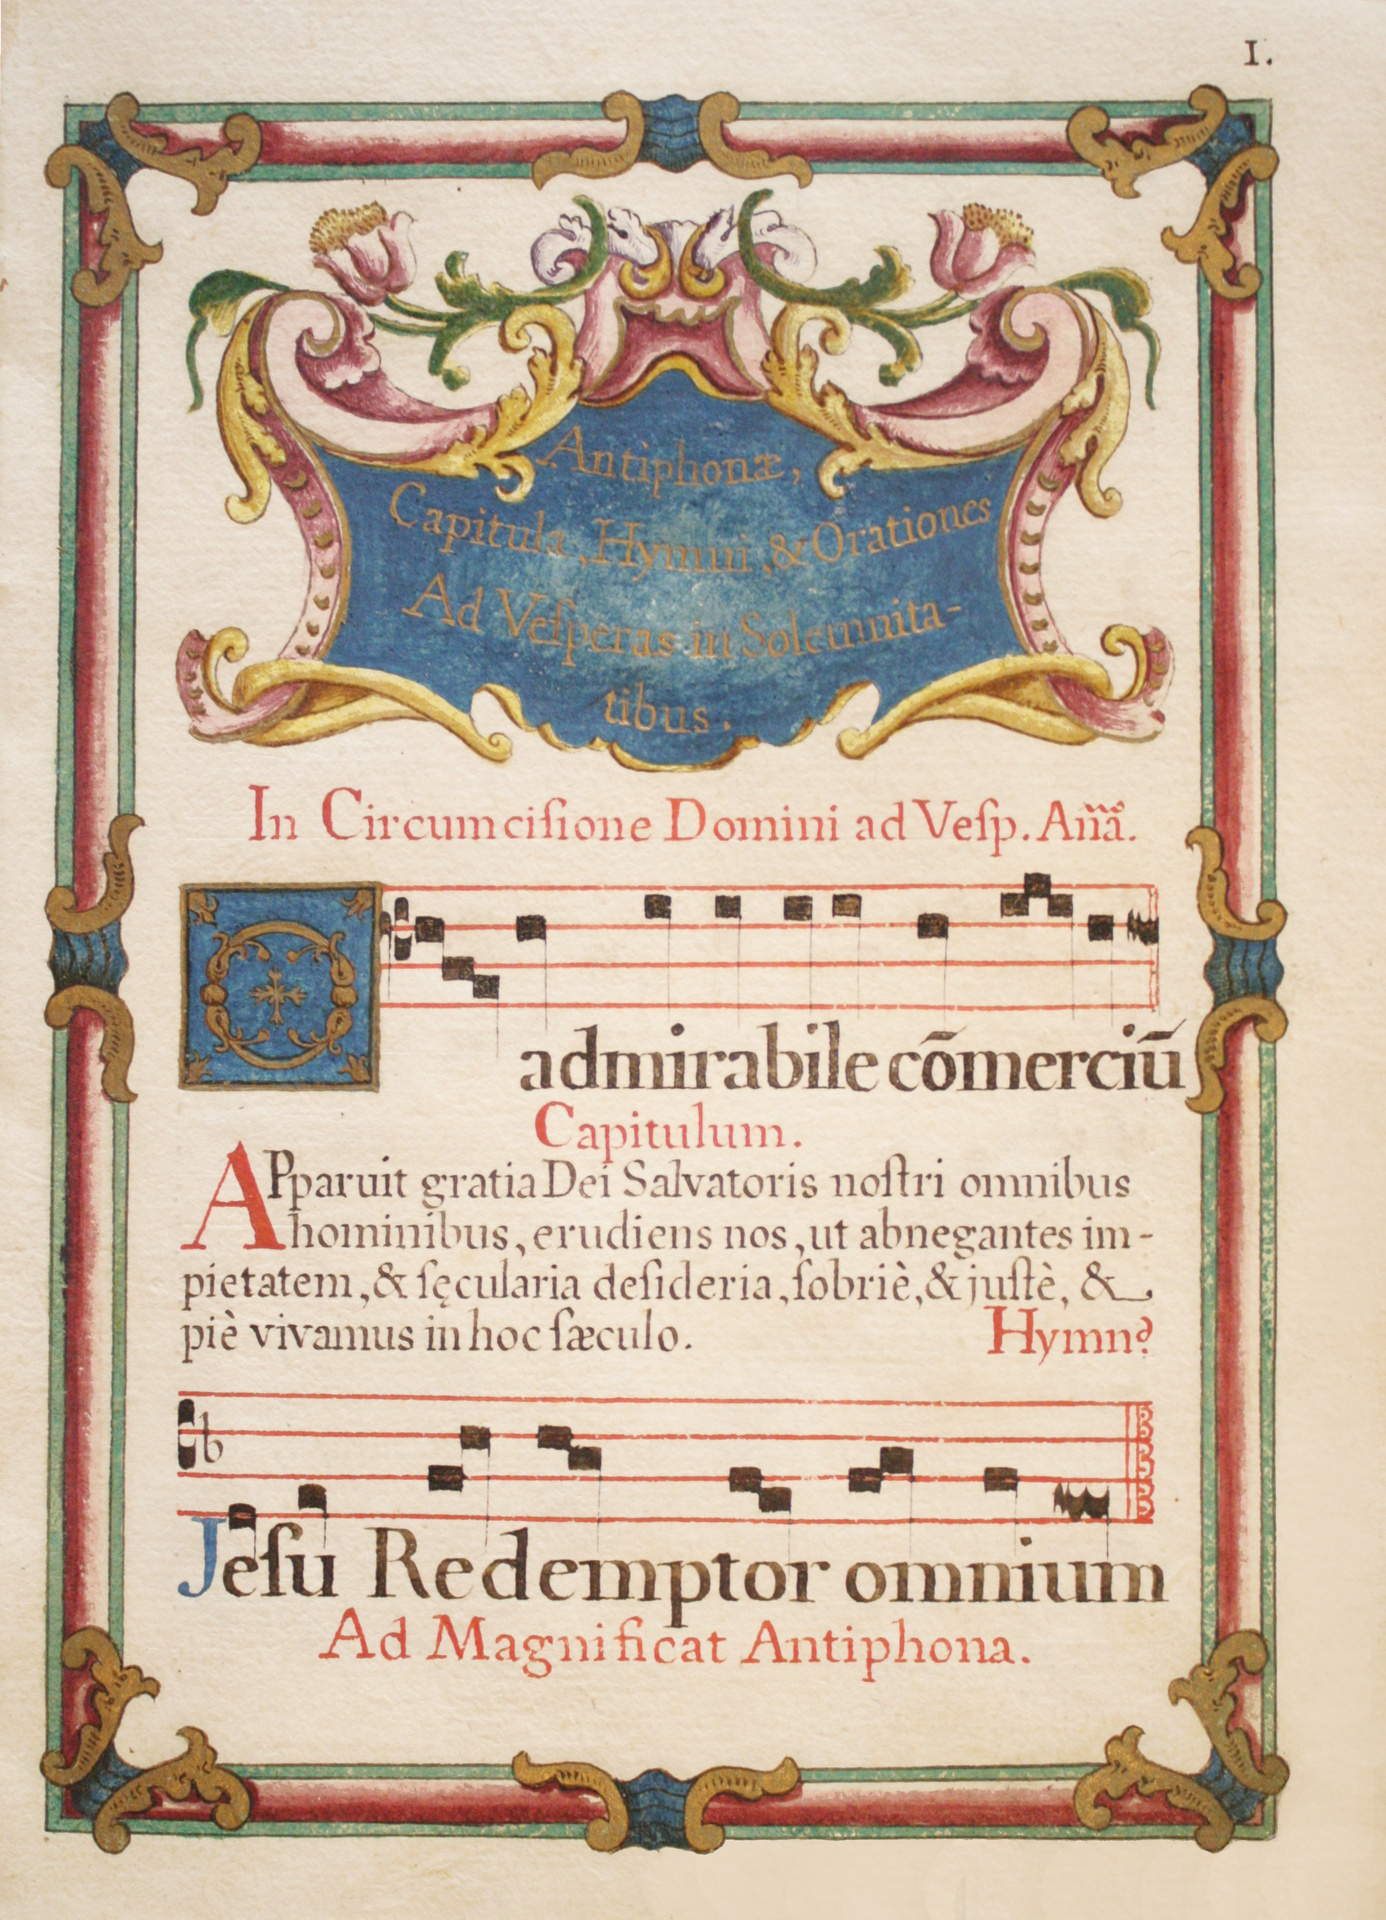 I.
Antiphonæ,
Capitula, Hymni, & Orationes
Ad Veſperas in Solemnita-
tibus.
In Circumciſione Domini ad Veſp. Añã.
O
admirabile cōmerciū
Capitulum.
APparuit gratia Dei Salvatoris noſtri omnibus
hominibus, erudiens nos, ut abnegantes im-
pietatem, & ſęcularia deſideria, ſobriè, & juſtè, &
piè vivamus in hoc ſæculo. Hymnꝰ
b
Jeſu Redemptor omnium
Ad Magnificat Antiphona.